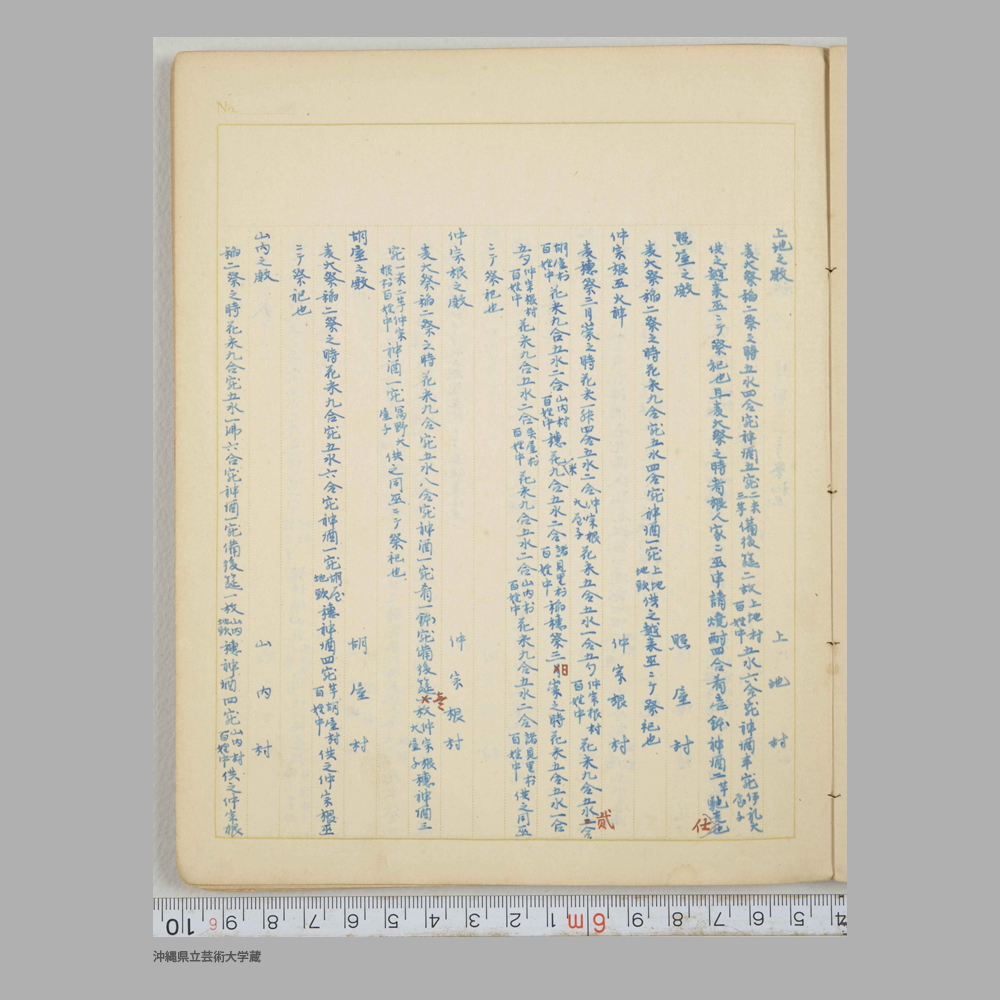 No.
上地之殿 上地村
麦大祭稲二祭之時五水四合宛神酒五宛二米三芋備後筵二枚上地村百姓中五水六合宛神酒半宛伊礼大屋子
供之越来巫ニテ祭祀也且麦大祭之時者根人家ニ巫申請焼酎四合肴壱鉢神酒二芋馳走也
仕
照屋之殿 照屋村
麦大祭稲二祭之時花米九合宛五水四合宛神酒一宛上地地頭供之越来巫ニテ祭祀也
仲宗根巫火神 仲宗根村
麦穂祭三月崇之時花米一升四合五水二合仲宗根大屋子花米五合五水一合五勺仲宗根村百姓中花米九合五水二合
貳
胡屋村百姓中花米九合五水二合山内村百姓中穂花九合五水二合諸見里村百姓中稲穂祭三日崇之時花米五合五水一合
五勺仲宗根村百姓中花米九合五水二合胡屋村百姓中花米九合五水二合山内村百姓中花米九合五水二合諸見里村百姓中供之同巫
ニテ祭祀也
仲宗根之殿 仲宗根村
麦大祭稲二祭之時花米九合宛五水八合宛神酒一宛肴一鉢宛備後筵壱枚仲宗根大屋子穂神酒三
宛一米二芋仲宗根村百姓中神酒一宛富野大屋子供之同巫ニテ祭祀也
胡屋之殿 胡屋村
麦大祭稲二祭之時花米九合宛五水六合宛神酒一宛胡屋地頭穂神酒四宛芋胡屋村百姓中供之仲宗根巫
ニテ祭祀也
山内之殿 山内村
稲二祭之時花米九合宛五水一沸六合宛神酒一宛備後筵一枚山内地頭穂神酒四宛山内村百姓中供之仲宗根
10 6 9 8 7 6 5 4 3 2 1 6m 9 8 7 6 5 4
沖縄県立芸術大学蔵